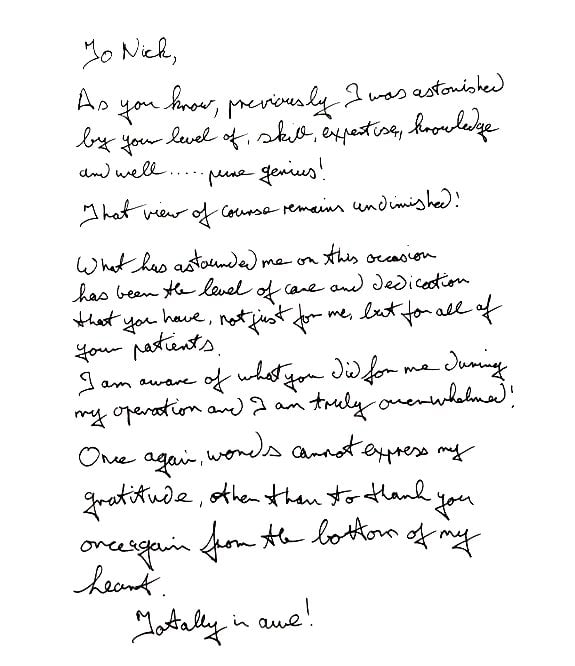 To Nick,
As you know, previously I was astonished
by your level of, skill, expertise, knowledge
and well.....pure genius!
That view of course remains undiminished!
What has astounded me on this occasion
has been the level of care and dedication
that you have, not just for me, but for all of
your patients.
I am aware of what you did for me during
my operation and I am truly overwhelmed!
Once again, words cannot express my
gratitude, other than to thank you
once again from the bottom of my
heart.
Totally in awe!